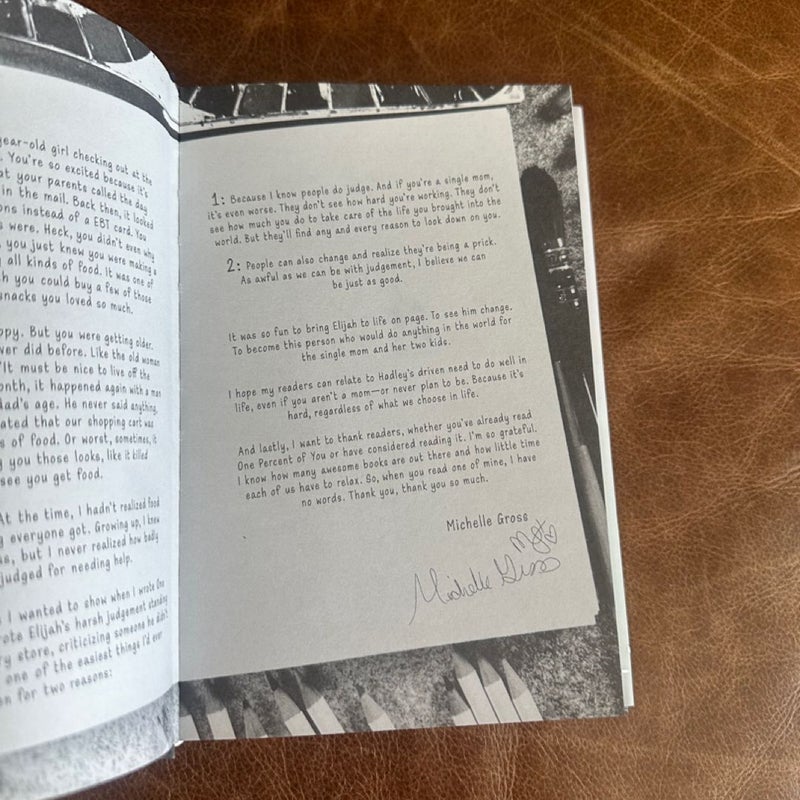 year-old girl checking out at the
You're so excited because it's
at your parents called the day
in the mail. Back then, it looked
ons instead of a EBT card. You
s were. Heck, you didn't even why
you just knew you were making a
all kinds of food. It was one of
h you could buy a few of those
snacks you loved so much.
ppy. But you were getting older.
ver did before. Like the old woman
"It must be nice to live off the
onth, it happened again with a man
dad's age. He never said anything,
ated that our shopping cart was
s of food. Or worst, sometimes, it
g you those looks, like it killed
see you get food.
At the time, I hadn't realized food
g everyone got. Growing up, I knew
us, but I never realized how badly
judged for needing help.
I wanted to show when I wrote One
rote Elijah's harsh judgement standing
ry store, criticizing someone he didn't
one of the easiest things I'd ever
en for two reasons:
1: Because I know people do judge. And if you're a single mom,
it's even worse. They don't see how hard you're working. They don't
see how much you do to take care of the life you brought into the
world. But they'll find any and every reason to look down on you.
2: People can also change and realize they're being a prick.
As awful as we can be with judgement, I believe we can
be just as good.
It was so fun to bring Elijah to life on page. To see him change.
To become this person who would do anything in the world for
the single mom and her two kids.
I hope my readers can relate to Hadley's driven need to do well in
life, even if you aren't a mom—or never plan to be. Because it's
hard, regardless of what we choose in life.
And lastly, I want to thank readers, whether you've already read
One Percent of You or have considered reading it. I'm so grateful.
I know how many awesome books are out there and how little time
each of us have to relax. So, when you read one of mine, I have
no words. Thank you, thank you so much.
Michelle Gross
Michelle Gross